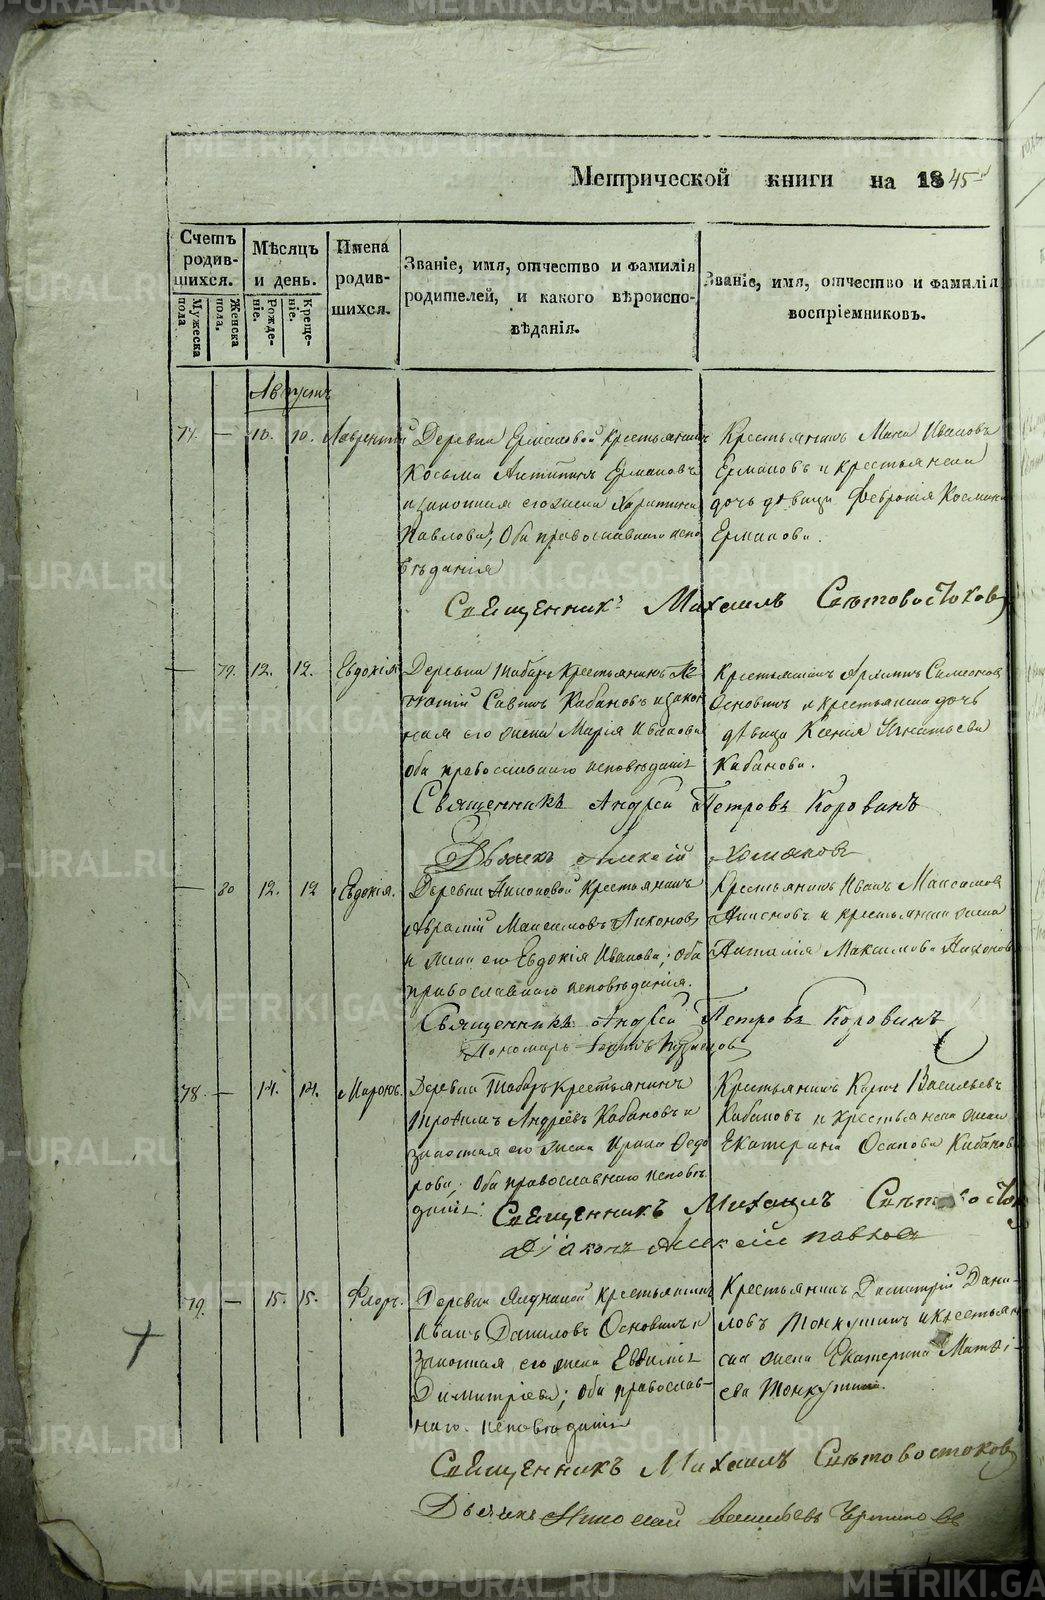 Метрической книги на 1845
Счетъ родившихся.
Мѣсяцъ и день.
Имена родившихся.
Званіе, имя, отчество и фамилія родителей, и какого вѣроисповѣданія.
Званіе, имя, отчество и фамилія воспріемниковъ.
Мужеска пола
Женска пола.
Рожденіе.
Крещеніе.
Августъ
77. — 10. 10. Лаврентій
Деревни Ермаковой Крестьянинъ
Косьма Антипинъ Ермаковъ
и законная его жена Харитина
Павлова; Оба православнаго испо
вѣданія
Крестьянинъ Иванов
Ермаковъ и крестьянска
дочь дѣвица Феврония Космина
Ермакова.
Священникъ Михаилъ Свѣтовостоковъ
— 79. 12. 12. Евдокія
Деревни Табаръ Крестьянинъ Иг
натій Савинъ Кабановъ и закон
ная его жена Марія Иванова
оба православнаго исповѣданія
Крестьянинъ Симеонов
Основинъ и крестьянска дочь
дѣвица Ксенія Игнатьева
Кабанова.
Священникъ Андрей Петровъ Коровинъ
Дьячекъ Алексій
— 80 12. 12 Евдокія.
Деревни Крестьянинъ
Аврамій Максимовъ
и жена его Евдокія Иванова; оба
православнаго исповѣданія.
Крестьянинъ Иванъ Максимов
и крестьянска жена
Наталія Максимова
Священникъ Андрей Петровъ Коровинъ
Пономарь Кузнецовъ
78. — 14. 14. Миронъ.
Деревни Табаръ крестьянинъ
Трофимъ Андреевъ Кабановъ и
законная его жена Ирина Федо
рова; оба православнаго исповѣ
данія.
Крестьянинъ Карпъ Васильевъ
Кабановъ и крестьянска жена
Екатерина Осипова Кабанов
Священникъ Михаилъ Свѣтовосток
Діаконъ Алексій Павлов
79. — 15. 15. Флоръ.
Деревни крестьянинъ
Иванъ Даниловъ Основинъ и
законная его жена Евфимія
Димитріева; оба православ-
наго исповѣданія
Крестьянинъ Димитрій Дани-
ловъ Тонкушинъ и крестьян
ска жена Екатерина Матѳі-
ева Тонкушина.
Священникъ Михаилъ Свѣтовостоков
Дьячекъ Николай Васильевъ
METRIKI.GASO-URAL.RU